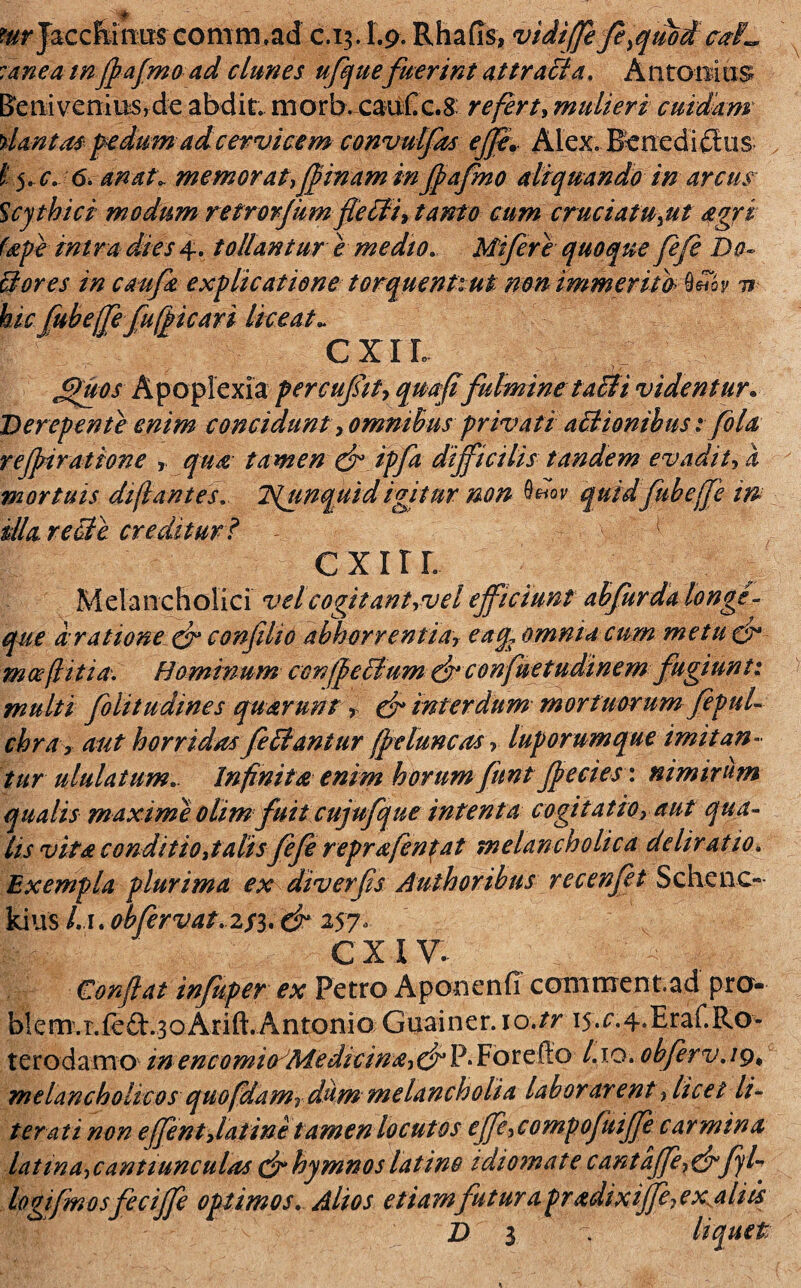 tur Jacchinus comm.ad c.13.l.9. Rhasis, vidisse se,quod cal-
canea in spasmo ad clunes usque fuerint attracta. Antonius
Benivenius,de abdit. morb. caus.c.8 refert, mulieri cuidam
plantas pedum ad cervicem convulsas esse. Alex. Benedictus
l 5. c. 6. anat. memorat, spinam in spasmo aliquando in arcus
Scythici modum retrorsum flecti, tanto cum cruciatu,ut ægri
sæpe intra dies 4. tollantur e medio. Misere quoque sese Do-
ctores in causæ explicatione torquent:ut non immerito θεῖόν τι
hic subesse suspicari liceat.
CXII.
Quos Apoplexia percussit, quasi fulmine tacti videntur.
Derepente enim concidunt, omnibus privati actionibus: sola
respiratione, quæ tamen & ipsa difficilis tandem evadit, à
mortuis distantes. Nunquid igitur non θεῖον quid subesse in
illa recte creditur?
CXIII.
Melancholici vel cogitant,vel efficiunt absurda longe-
que à ratione & consilio abhorrentia, eaq; omnia cum metu &
mœstitia. Hominum conspectum & consuetudinem fugiunt:
multi solitudines quærunt, & interdum mortuorum sepul-
chra, aut horridas sectantur speluncas, luporumque imitan-
tur ululatum. Infinitæ enim horum sunt species: nimirùm
qualis maximè olim fuit cujusque intenta cogitatio, aut qua-
lis vitæ conditio,talis sese repræsentat melancholica deliratio.
Exempla plurima ex diversis Authoribus recenset Schenc-
kius l.1. observat. 253. & 257.
CXIV.
Constat insuper ex Petro Aponensi comment.ad pro-
blem.1.sect.30 Arist. Antonio Guainer. 10.tr 15.c.4.Eras.Ro-
terodamo in encomio Medicinæ,& P. Foresto l.10. observ.19.
melancholicos quosdam, dùm melancholia laborarent, licet li-
terati non essent,latinè tamen locutos esse,composuisse carmina
latina,cantiunculas & hymnos latino idiomate cantâsse,& syl-
logismos fecisse optimos. Alios etiam futura prædixisse,ex aliis
D 3 liquet